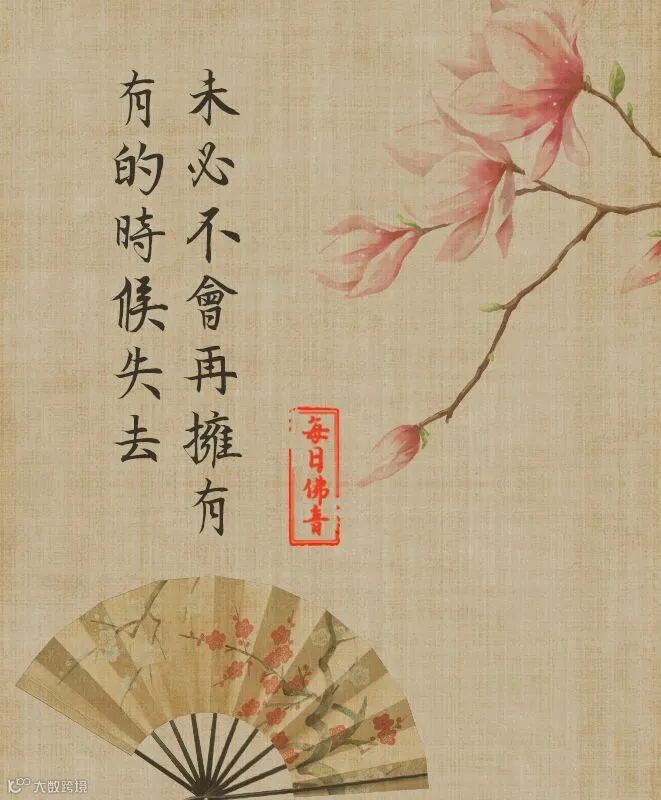 有的時候失去
未必不會再擁有
每日佛音
大数跨境